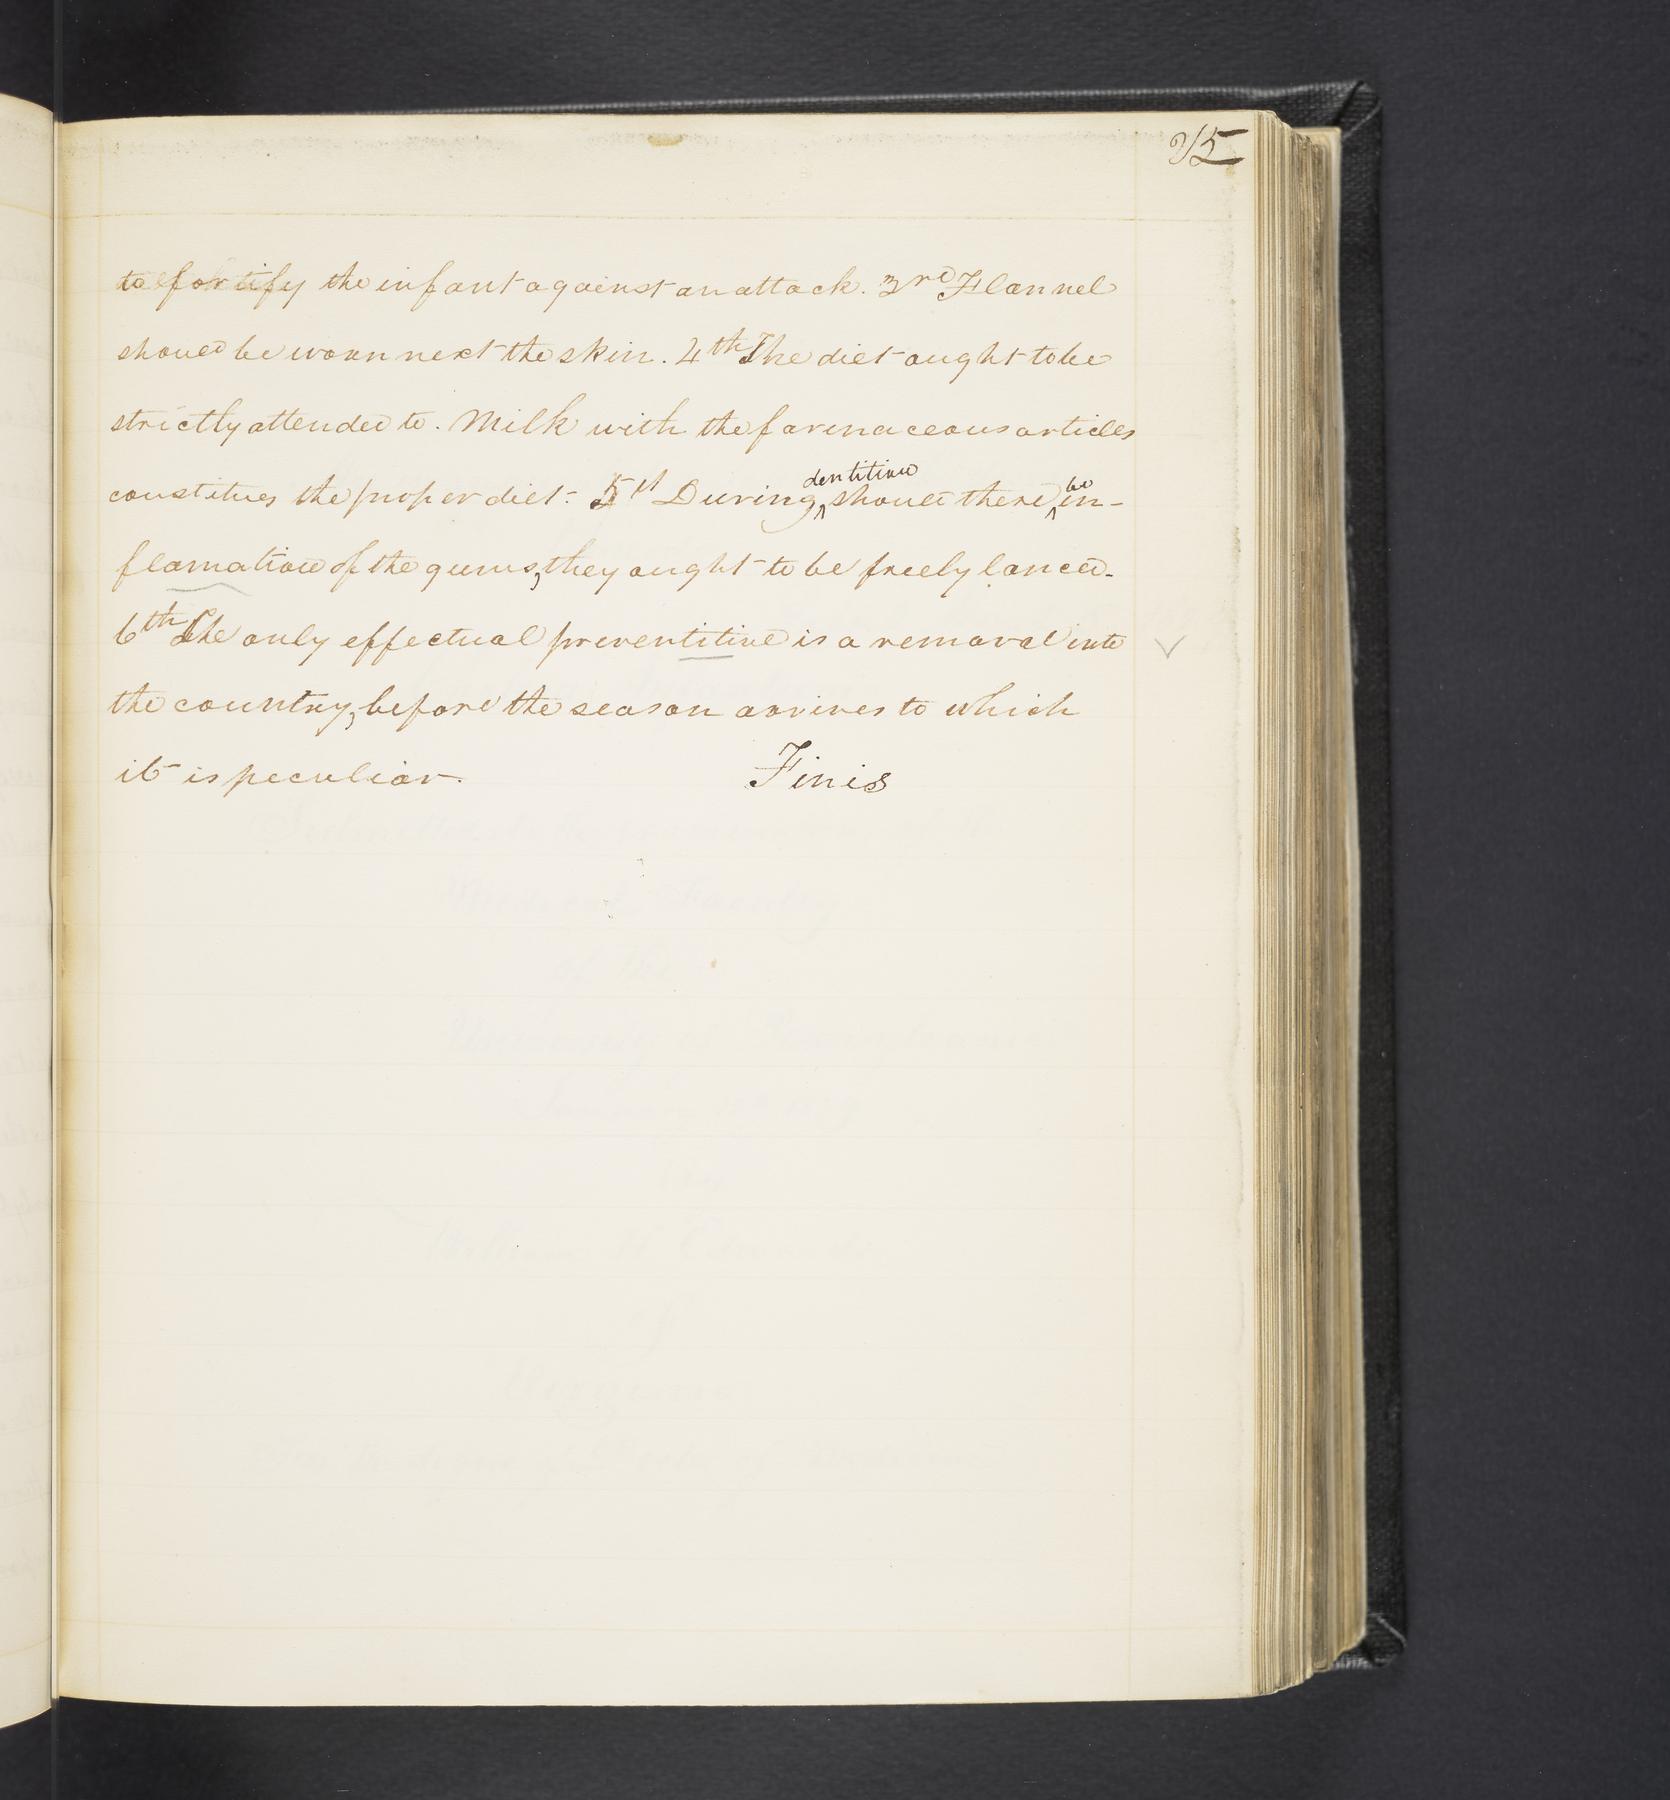 25
to fortify the infant against an attack. 3rd Flannel
should be worn next the skin. 4th The diet ought to be
strictly attended to. Milk with the farinaceous articles
constitues the proper diet. 5th During dentition should there be in-
flamation of the gums, they ought to be freely lanced.
6th The only effectual preventitive is a removal into
the country, before the season arrives to which
it is peculiar. Finis